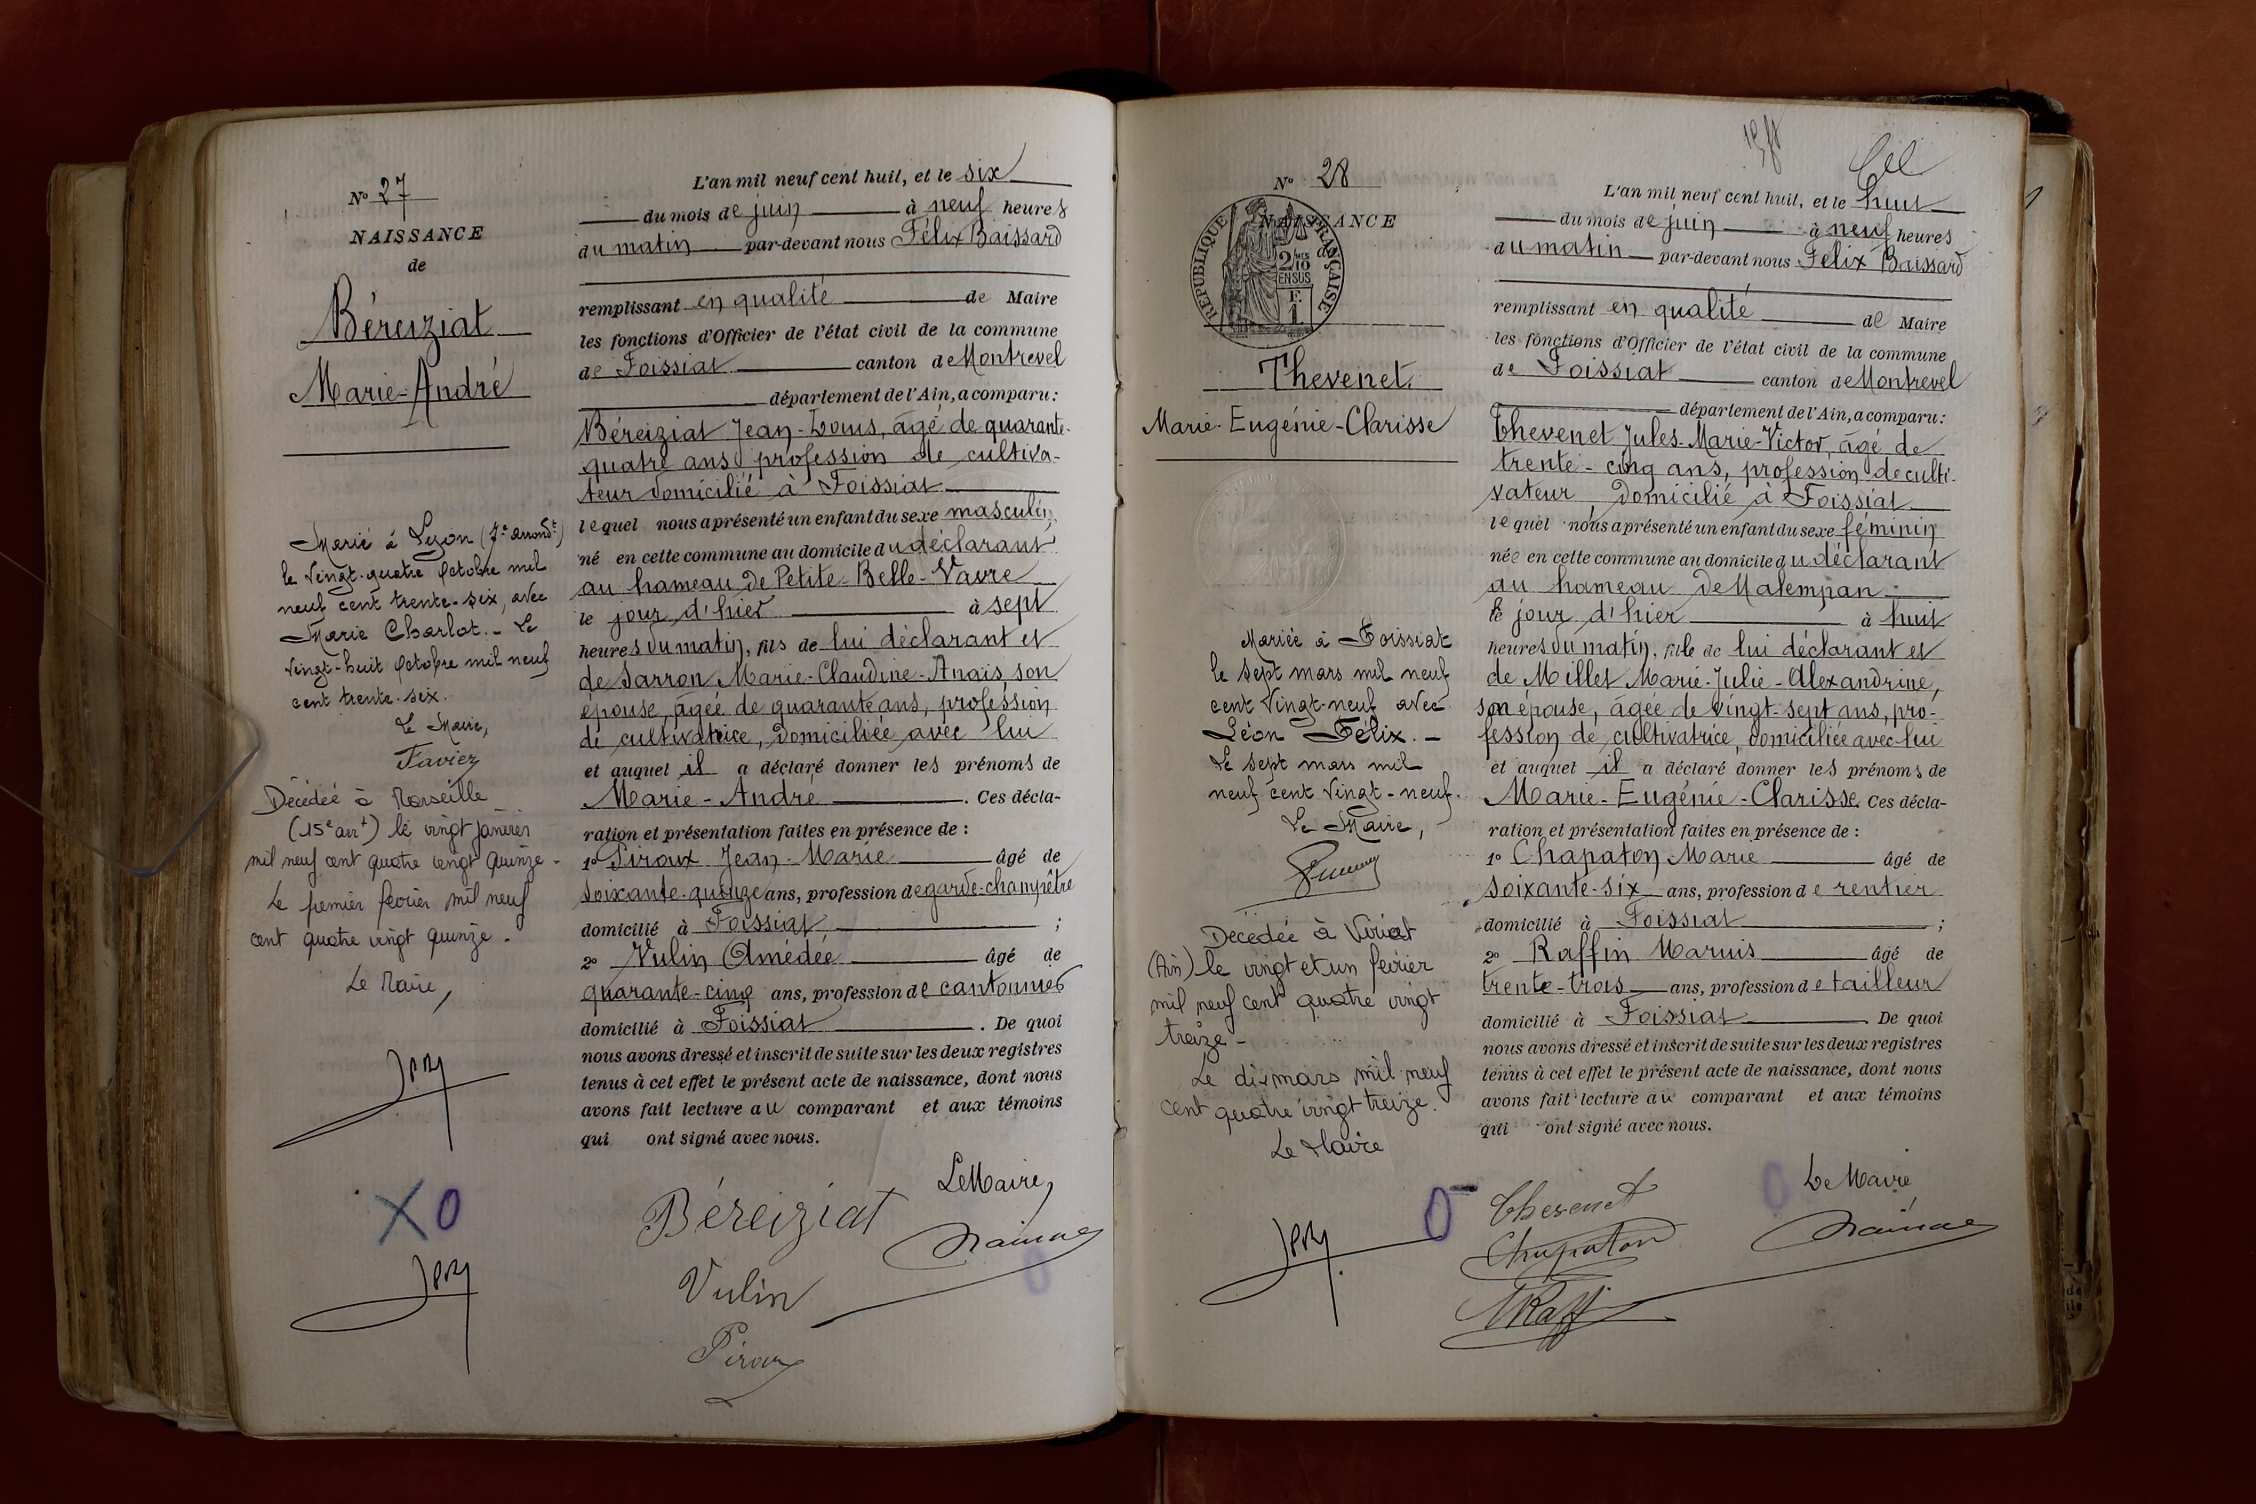 N° 27
NAISSANCE
de
Béreiziat
Marie-André
Marié à Lyon (7e arrondt)
le vingt-quatre Octobre mil
neuf cent trente-six, avec
Marie Charlot. - Le
vingt-huit Octobre mil neuf
cent trente-six.
Le Maire,
Favier
Décédéé à Marseille
(15e arrt) le vingt janvier
mil neuf cent quatre vingt quinze -
Le premier février mil neuf
cent quatre vingt quinze.
Le Maire,
XO
L'an mil neuf cent huit, et le six
du mois de juin à neuf heures
du matin par-devant nous Félix Baissard
remplissant en qualité de Maire
les fonctions d'Officier de l'état civil de la commune
de Foissiat canton de Montrevel
département de l'Ain, a comparu:
Béreiziat Jean-Louis, âgé de quarante-
quatre ans profession de cultiva-
teur domicilié à Foissiat
lequel nous a présenté un enfant du sexe masculin,
né en cette commune au domicile du déclarant
au hameau de Petite-Belle-Vavre
le jour d'hier à sept
heures du matin, fils de lui déclarant et
de Sarron Marie-Claudine-Anaïs son
épouse, âgée de quarante ans, profession
de cultivatrice, domiciliée avec lui
et auquel il a déclaré donner les prénoms de
Marie-André. Ces décla-
ration et présentation faites en présence de :
1° Piroux Jean-Marie âgé de
soixante-quinze ans, profession de garde-champêtre
domicilié à Foissiat ;
2° Vulin Amédée âgé de
quarante-cinq ans, profession de cantonnier
domicilié à Foissiat. De quoi
nous avons dressé et inscrit de suite sur les deux registres
tenus à cet effet le présent acte de naissance, dont nous
avons fait lecture au comparant et aux témoins
qui ont signé avec nous.
Le Maire,
Béreiziat
Vulin
Piroux
N° 28
NAISSANCE
de
REPUBLIQUE FRANÇAISE
2/10 EN SUS
F. 1
Thevenet
Marie-Eugénie-Clarisse
Mariée à Foissiat
le sept mars mil neuf
cent vingt-neuf avec
Léon Félix. -
Le sept mars mil
neuf cent vingt-neuf.
Le Maire,
Décédée à Viriat
(Ain) le vingt et un février
mil neuf cent quatre vingt
treize -
Le dix mars mil neuf
cent quatre vingt treize.
Le Maire
O
L'an mil neuf cent huit, et le huit
du mois de juin à neuf heures
du matin par-devant nous Félix Baissard
remplissant en qualité de Maire
les fonctions d'Officier de l'état civil de la commune
de Foissiat canton de Montrevel
département de l'Ain, a comparu:
Thevenet Jules-Marie-Victor, âgé de
trente-cinq ans, profession de culti-
vateur domicilié à Foissiat
lequel nous a présenté un enfant du sexe féminin
née en cette commune au domicile du déclarant
au hameau de Malempan
le jour d'hier à huit
heures du matin, fille de lui déclarant et
de Millet Marie-Julie-Alexandrine,
son épouse, âgée de vingt-sept ans, pro-
fession de cultivatrice, domiciliée avec lui
et auquel il a déclaré donner les prénoms de
Marie-Eugénie-Clarisse. Ces décla-
ration et présentation faites en présence de :
1° Chapaton Marie âgé de
soixante-six ans, profession de rentier
domicilié à Foissiat ;
2° Raffin Marius âgé de
trente-trois ans, profession de tailleur
domicilié à Foissiat. De quoi
nous avons dressé et inscrit de suite sur les deux registres
tenus à cet effet le présent acte de naissance, dont nous
avons fait lecture au comparant et aux témoins
qui ont signé avec nous.
Le Maire
Thevenet
Chapaton